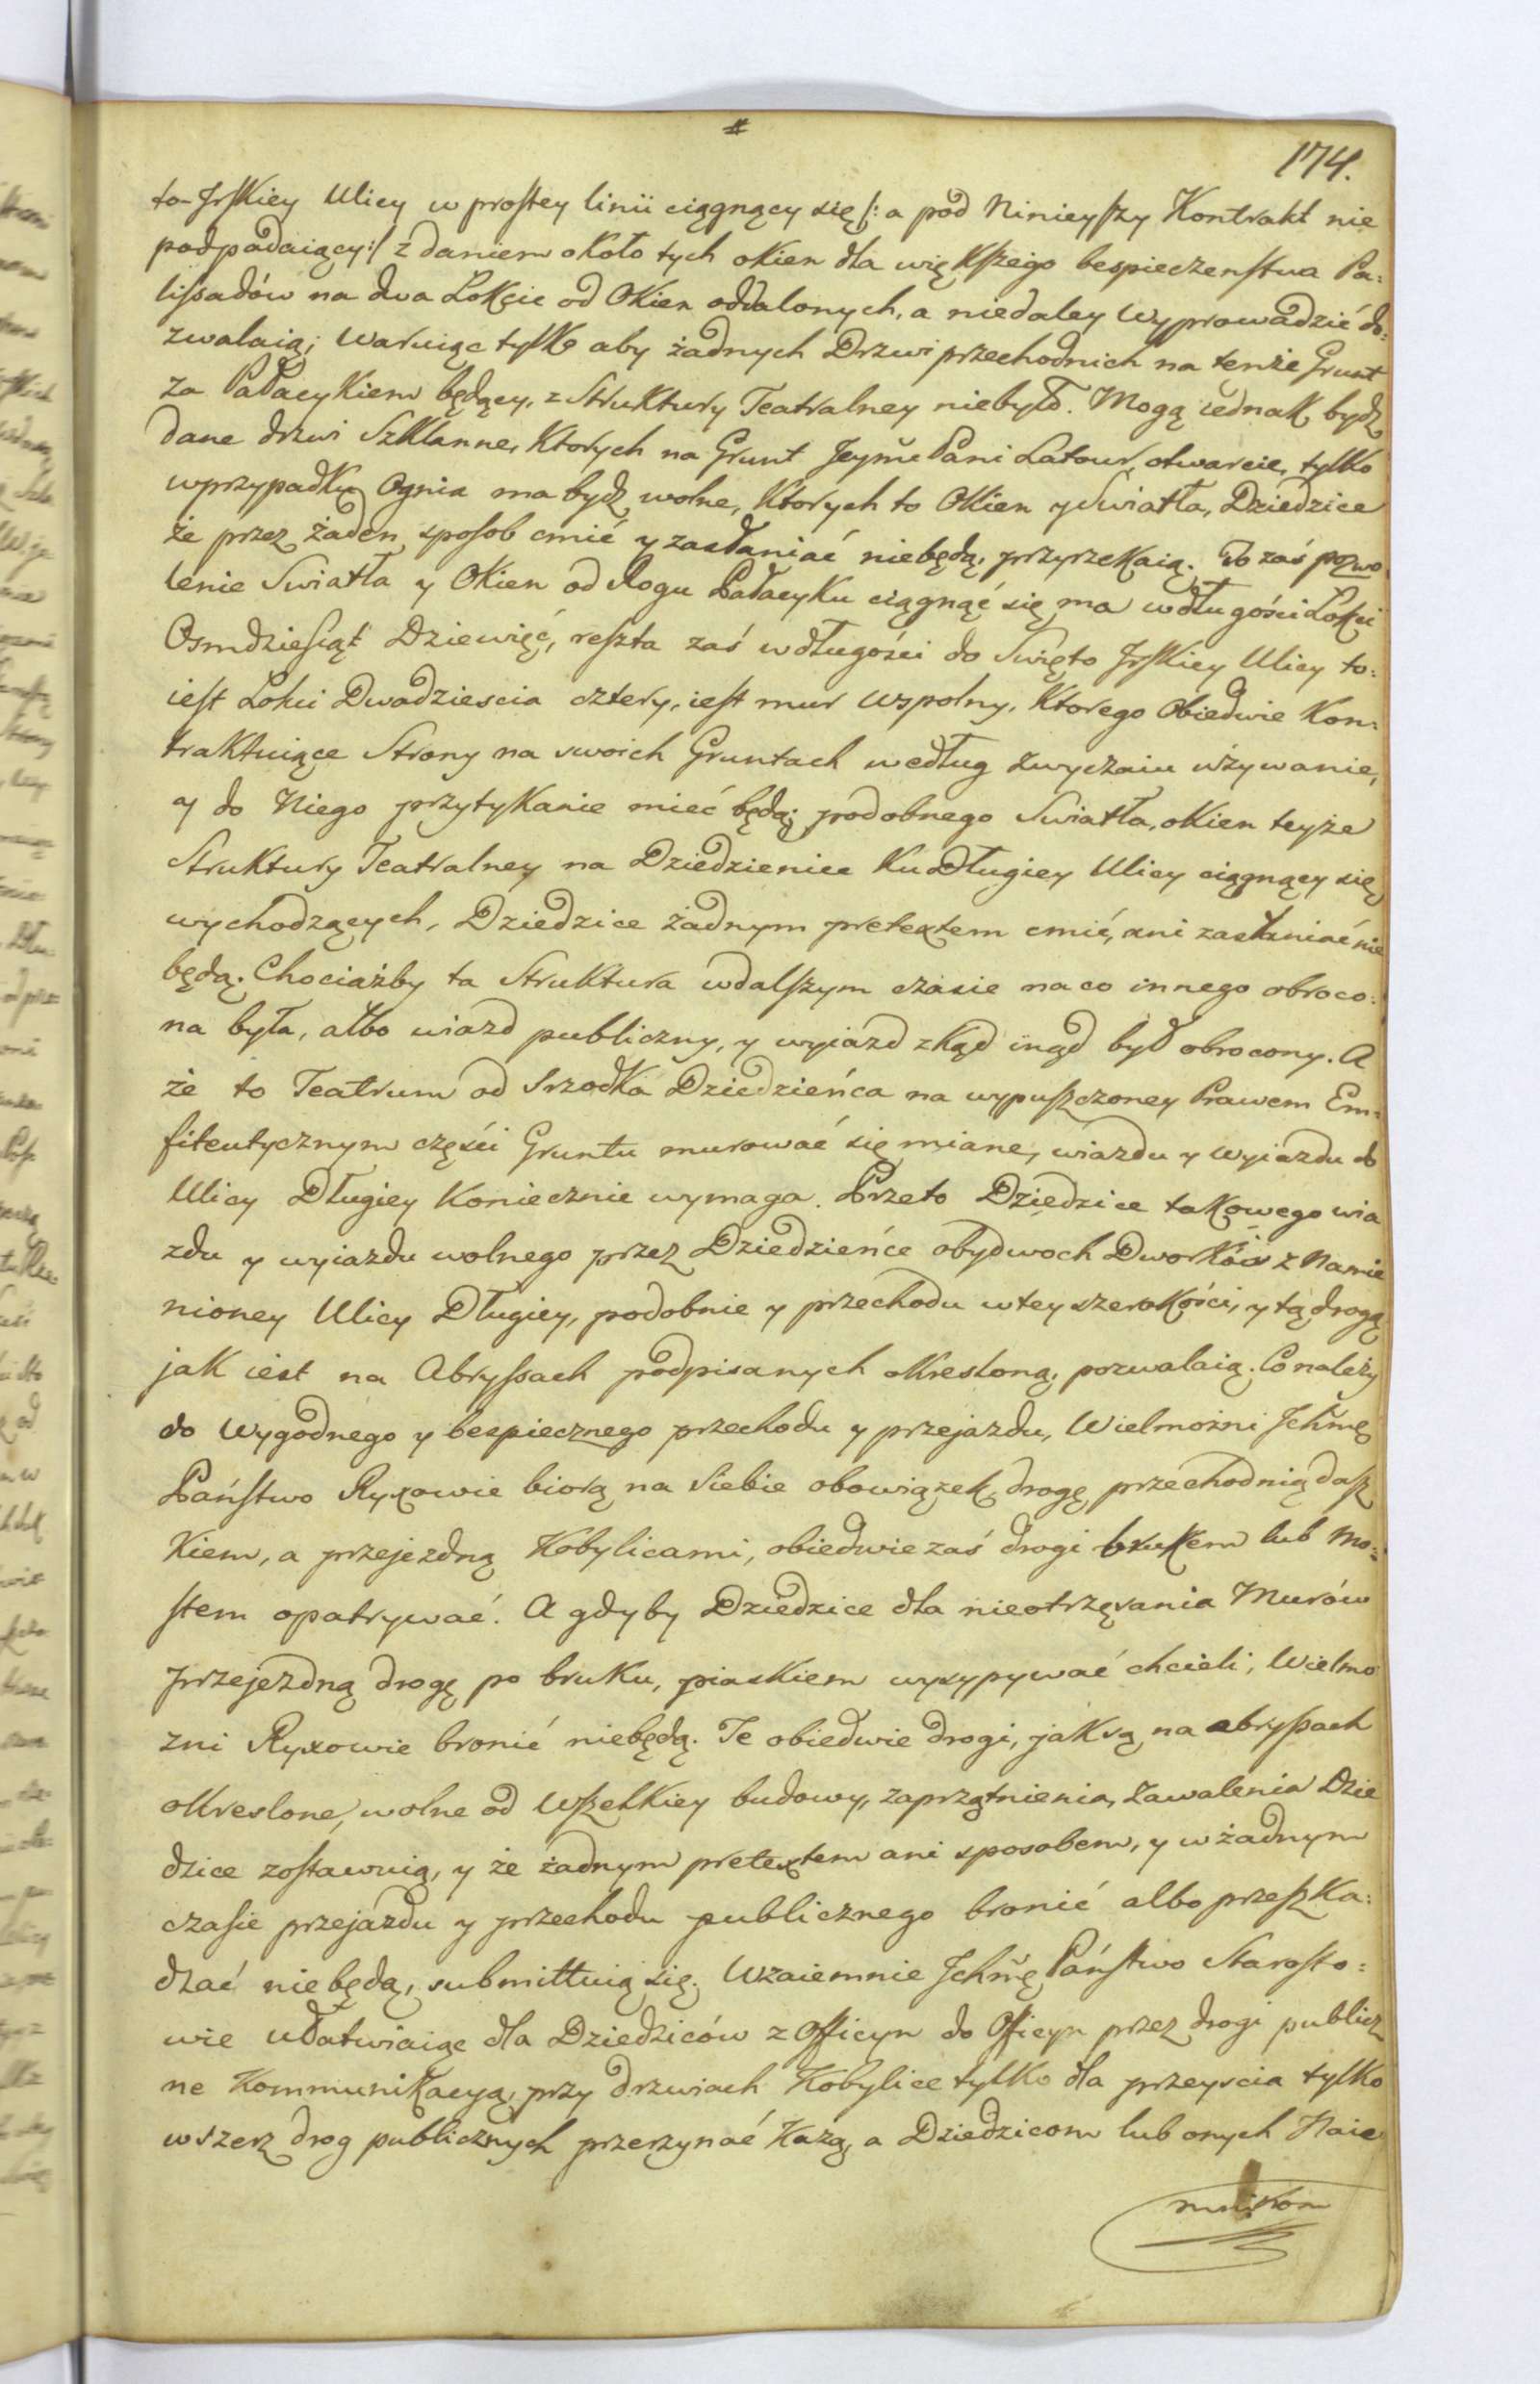 174.
to-Jrſkiey Ulicy w proſtey linii ciągnący się /: a pod Ninieyſzy Kontrakt nie
podpadaiący :/ z daniem około tych okien dla więkſzego bespieczenſtwa Pa:
liſsadów na dwa Łokcie od Okien oddalonych, a niedaley Wyprowadzić do:
zwalaią; Waruiąc tylko aby żadnych Drzwi przechodnich na tenże Grunt
za Pałacykiem będący, z Struktury Teatralney niebyło. Mogą iednak bydz
dane drzwi Szklanne, Ktorych na Grunt Jeymć Pani Latour, otwarcie, tylko
wprzypadku Ognia ma bydz wolne, Ktorych to Okien y Swiatła, Dziedzice
że przez żaden sposob cmić y zasłaniać niebędą, przyrzekaią. To zaś pozwo
lenie Swiatła y Okien od Rogu Pałacyku ciągnąć się ma w długości Łokci
Osmdzieſiąt Dziewięć, reſzta zaś w długości do Swięto Jrſkiey Ulicy to:
ieſt Łokci Dwadziescia cztery, ieſt mur Wspolny, Ktorego Obiedwie Kon:
traktuiące Strony na swoich Gruntach według Zwyczaiu używanie,
y do Niego przytykanie mieć będą; podobnego Swiatła, okien teyże
Struktury Teatralney na Dziedzieniec Ku Długiey Ulicy ciągnący się
wychodzących, Dziedzice żadnym pretextem cmić, ani zasłaniać nie
będą. Chociażby ta Struktura w dalſzym czasie na co innego obroco:
na była, albo wiazd publiczny, y wyiazd zkąd inąd był obrocony. A
że to Teatrum od Srzodka Dziedzieńca na wypuſzczoney Prawem Em:
fiteutycznym części Gruntu murować się miane, wiazdu y Wyiazdu do
Ulicy Długiey Koniecznie wymaga. Przeto Dziedzice takowego wia
zdu y wyiazdu wolnego przez Dziedzieńce obydwoch Dworków z Namie
nioney Ulicy Długiey, podobnie y przechodu w tey szerokości, y tą drogą
jak iest na Abryſsach podpisanych okresloną, pozwalaią. Co należy
do Wygodnego y bespiecznego przechodu y przejazdu, Wielmożni Jchmć
Pańſtwo Ryxowie biorą na Siebie obowiązek, drogę przechodnią daſz
Kiem, a przejezdną Kobylicami, obiedwie zaś drogi brukem lub Mo:
ſtem opatrywać. A gdyby Dziedzice dla nieotrzęsania Murów
przejezdną drogę po bruku, piaskiem wysypywać chcieli, Wielmo
zni Ryxowie bronić niebędą. Te obiedwie drogi, jak są na abryſsach
okreslone, wolne od Wſzelkiey budowy, zaprzątnienia, Zawalenia Dzie
dzice zoſtawuią, y że żadnym pretextem ani sposobem, y w żadnym
czaſie przejazdu y przechodu publicznego bronić albo przeſzka:
dzać niebędą, submittuią się. Wzaiemnie Jchmć Pańſtwo Staroſto:
wie ułatwiaiąc dla Dziedziców z Officyn do Officyn przez drogi publicz
ne Kommunikacyą, przy drzwiach Kobylice tylko dla przeyscia tylko
wszerz drog publicznych przerzynać Każą, a Dziedzicom lub onych Naie
mnikom